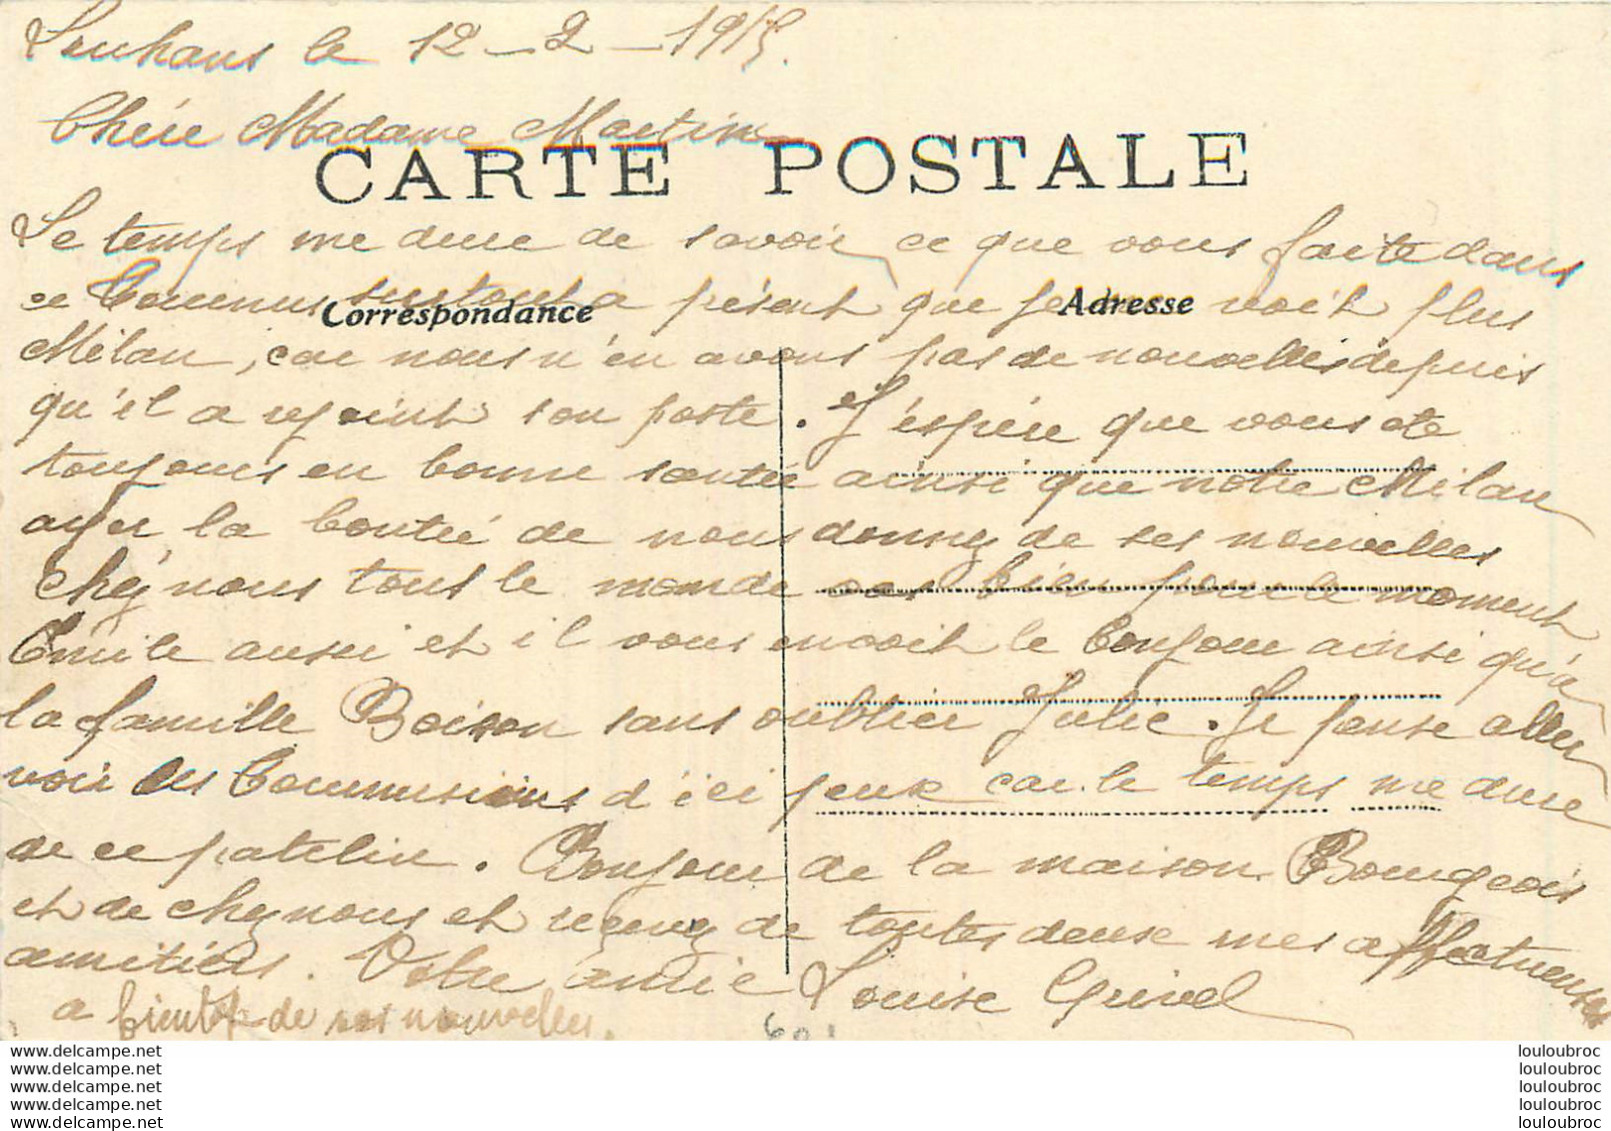 Louhans le 12-2-1915.
Chére Madame Martin
CARTE POSTALE
Le temps me dure de savoir ce que vous faite dans
ce Tournus surtout a présent que je ne voit plus
Correspondance
Adresse
Milan, car nous n'en avons pas de nouvelles depuis
qu'il a rejoint son poste. J'éspére que vous ete
toujours en bonne santée ainsi que notre Milan
ayer la bontée de nous donnez de ses nouvelles
chez nous tous le monde vas bien pour le moment
Emile aussi et il vous envoit le bonjour ainsi qu'a
la famille Boison sans oublier Julie. Je pense aller
voir les Tournusiens d'ici peux car le temps me dure
de ce patelin. Bonjour de la maison Bourgeois
et de chez nous et reçevez de toutes deuse mes affectueuses
amitiés. Votre amie Louise Grivel
a bientot de vos nouvelles.
60
www.delcampe.net
www.delcampe.net
www.delcampe.net
www.delcampe.net
www.delcampe.net
louloubroc
louloubroc
louloubroc
louloubroc
louloubroc